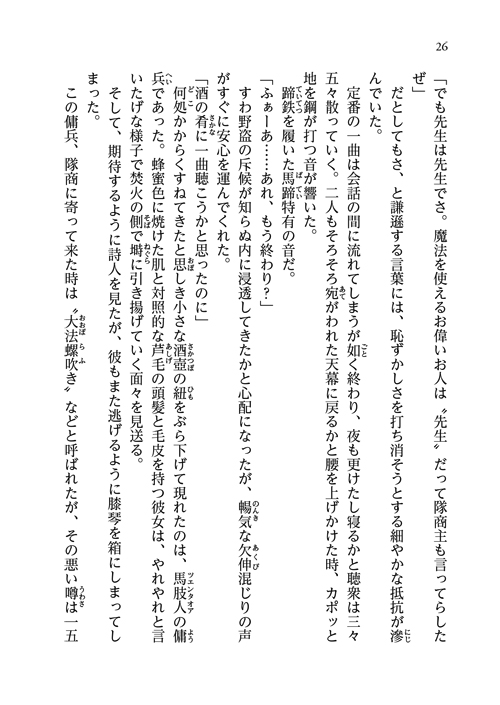 26
「でも先生は先生でさ。魔法を使えるお偉いお人は〝先生〟だって隊商主も言ってらした
ぜ」
だとしてもさ、と謙遜する言葉には、恥ずかしさを打ち消そうとする細やかな抵抗が滲
んでいた。
定番の一曲は会話の間に流れてしまうが如く終わり、夜も更けたし寝るかと聴衆は三々
五々散っていく。二人もそろそろ宛がわれた天幕に戻るかと腰を上げかけた時、カポッと
地を鋼が打つ音が響いた。
蹄鉄を履いた馬蹄特有の音だ。
「ふぁーあ……あれ、もう終わり？」
すわ野盗の斥候が知らぬ内に浸透してきたかと心配になったが、暢気な欠伸混じりの声
がすぐに安心を運んでくれた。
「酒の肴に一曲聴こうかと思ったのに」
何処かからくすねてきたと思しき小さな酒壺の紐をぶら下げて現れたのは、馬肢人の傭
兵であった。蜂蜜色に焼けた肌と対照的な芦毛の頭髪と毛皮を持つ彼女は、やれやれと言
いたげな様子で焚火の側で塒に引き揚げていく面々を見送る。
そして、期待するように詩人を見たが、彼もまた逃げるように膝琴を箱にしまってし
まった。
この傭兵、隊商に寄って来た時は〝大法螺吹き〟などと呼ばれたが、その悪い噂は一五